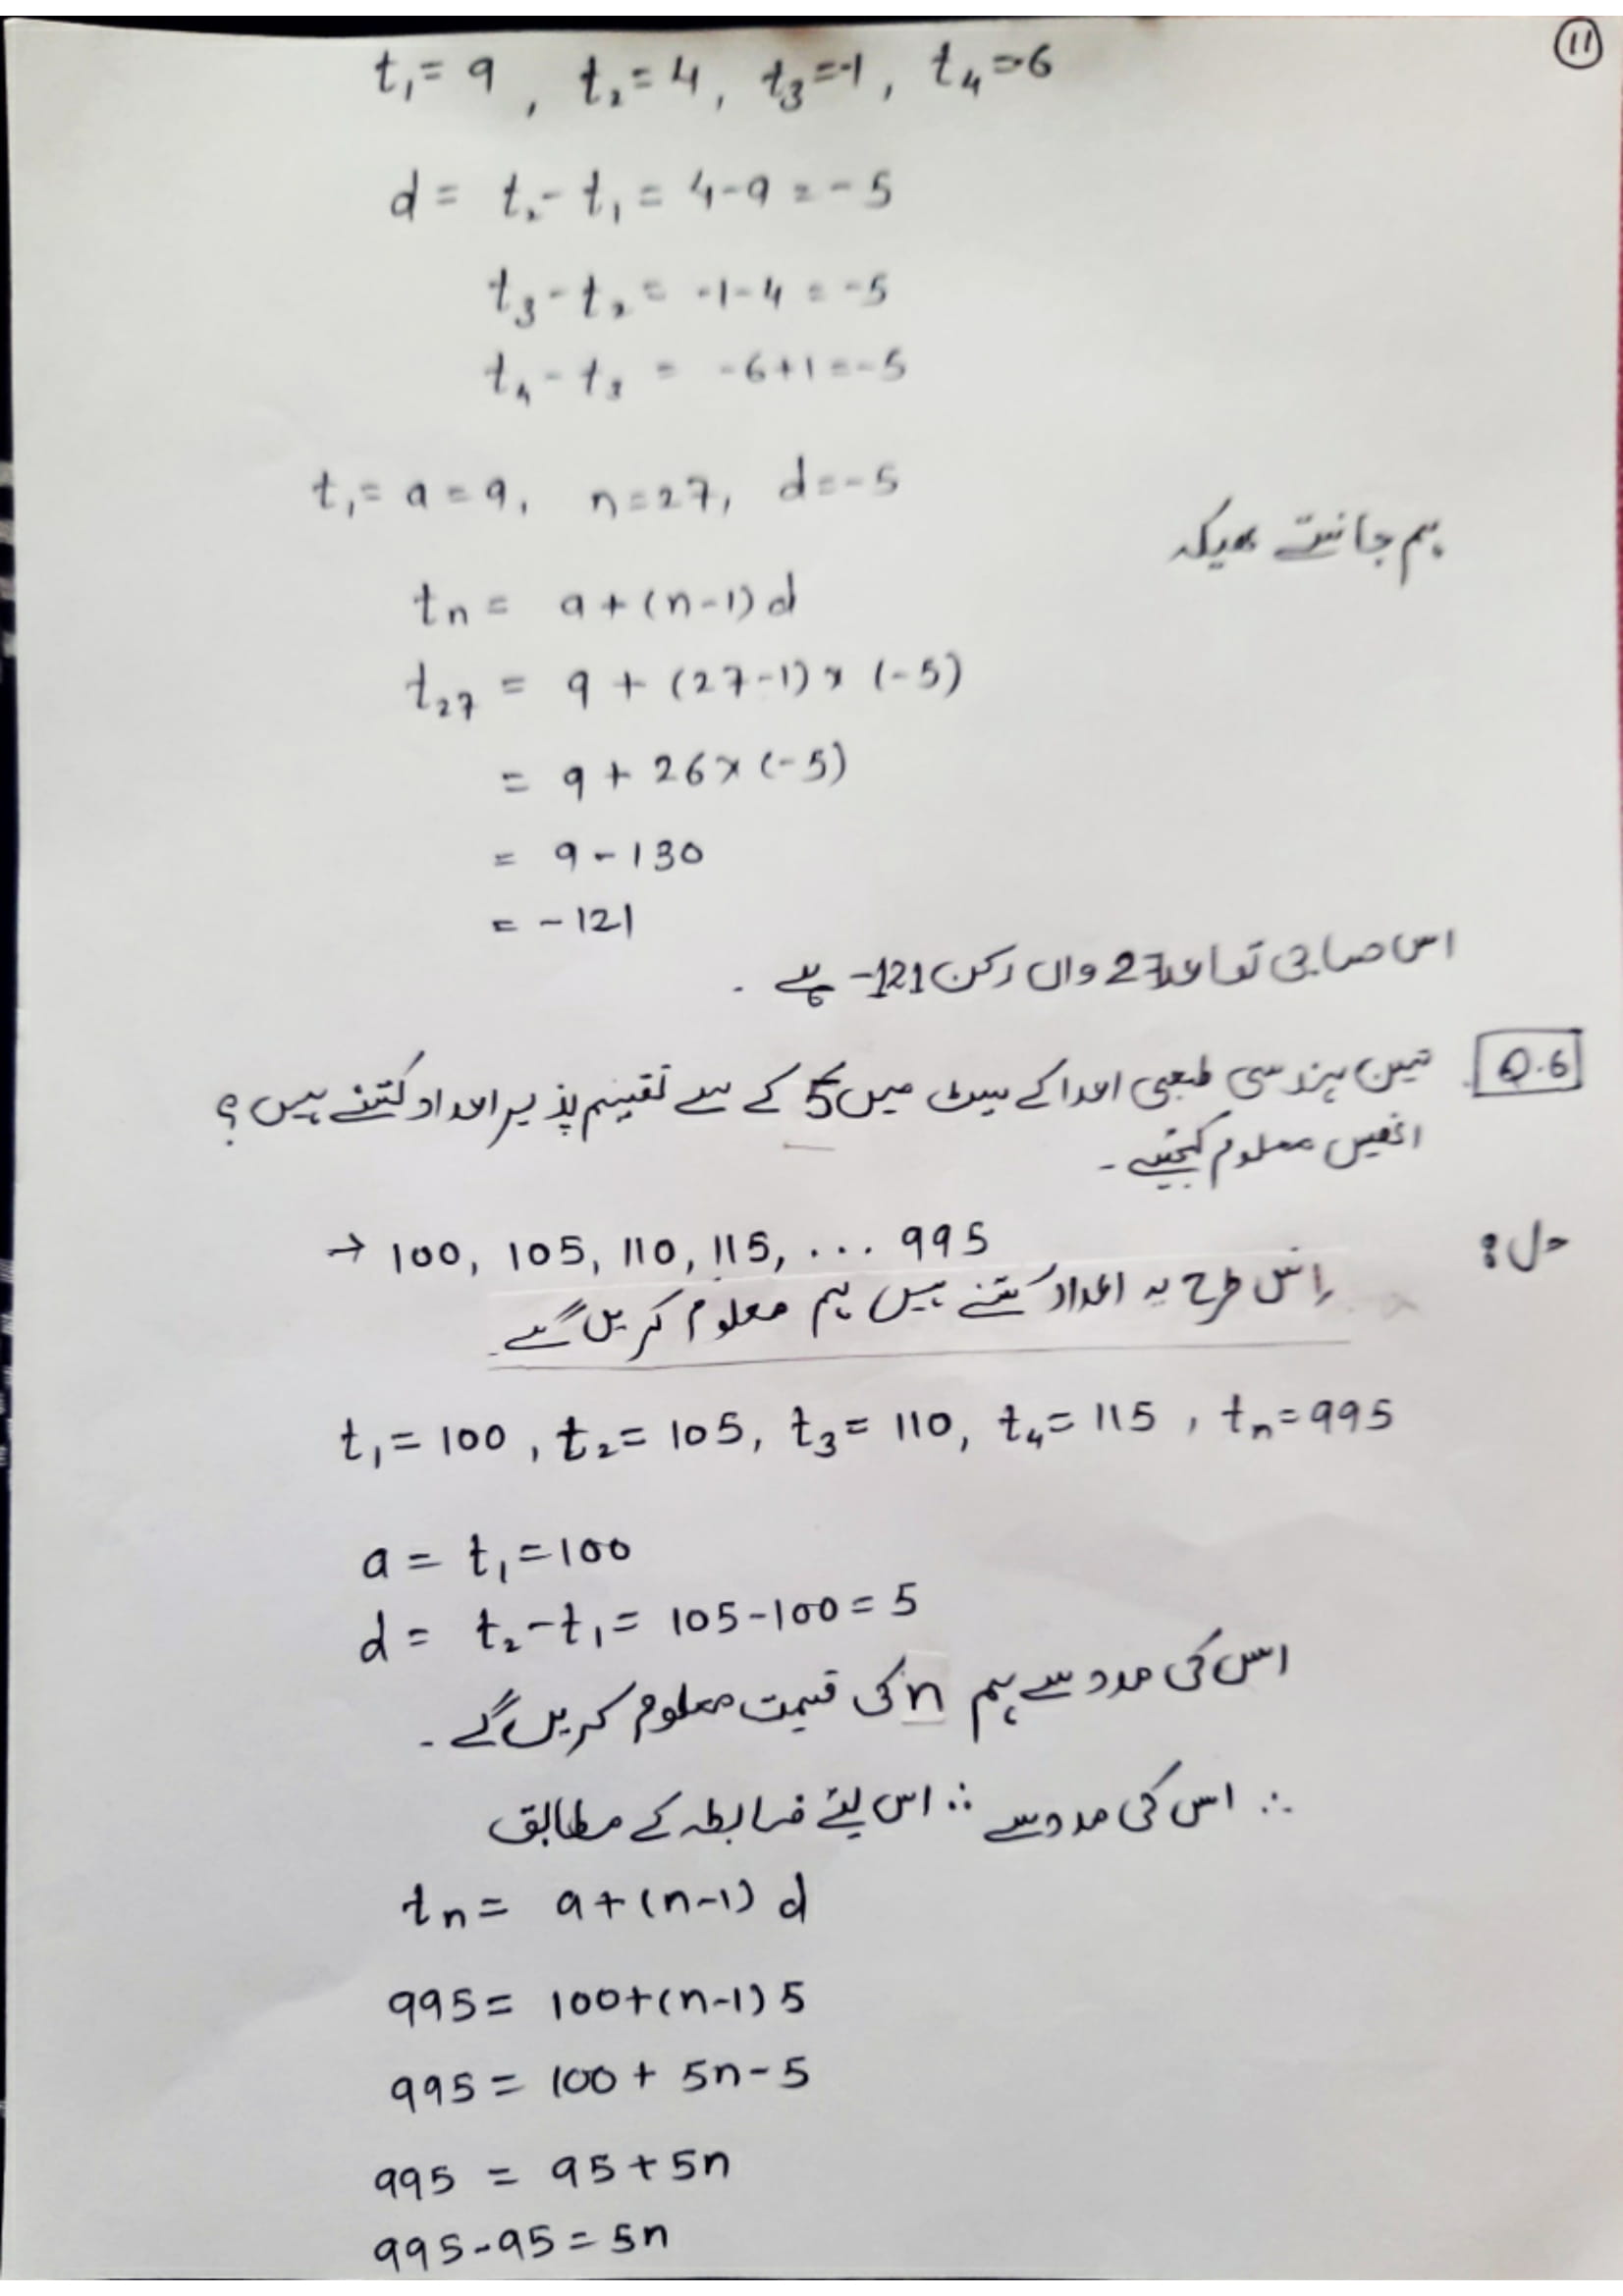 11
t₁= 9 , t₂= 4, t₃=-1, t₄=-6
d = t₂- t₁ = 4-9 = -5
t₃-t₂ = -1-4 = -5
t₄-t₃ = -6+1=-5
t₁= a = 9, n=27, d=-5
ہم جانتے ھیکہ
tn = a+(n-1)d
t₂₇ = 9 + (27-1)× (-5)
= 9 + 26×(-5)
= 9-130
= -121
اس حسابی تواعد 27 واں رکن 121- ہے .
Q.6 تین ہندسی طبعی اعدا کے سیٹ میں 5 کے سے تقسیم پذیر اعداد کتنے ہیں ؟
انھیں معلوم کیجیے -
حل :
→ 100, 105, 110, 115, ... 995
اس طرح یہ اعداد کتنے ہیں ہم معلوم کریں گے.
t₁= 100 , t₂= 105, t₃= 110, t₄= 115 , tn=995
a = t₁=100
d = t₂-t₁= 105-100= 5
اس کی مدد سے ہم n کی قیمت معلوم کریں گے -
∴ اس کی مدد سے ∴ اس لئے ضابطہ کے مطابق
tn= a+(n-1) d
995= 100+(n-1) 5
995= 100 + 5n-5
995 = 95+5n
995-95=5n